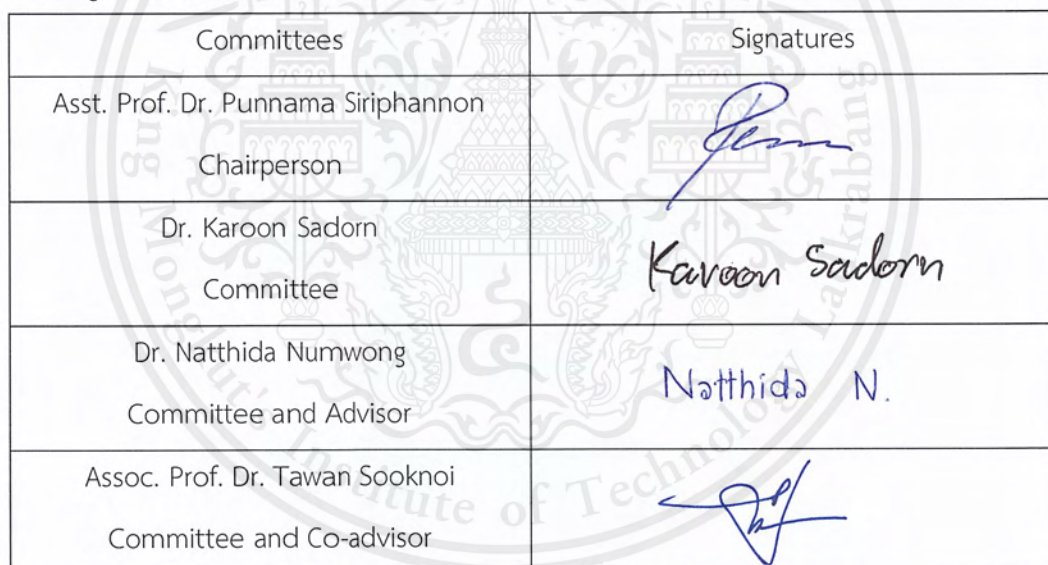 Committees Signatures
Asst. Prof. Dr. Punnama Siriphannon
Chairperson
Dr. Karoon Sadorn
Committee
Karoon Sadorn
Dr. Natthida Numwong
Committee and Advisor
Natthida N.
Assoc. Prof. Dr. Tawan Sooknoi
Committee and Co-advisor
King Mongkut's Institute of Technology Ladkrabang